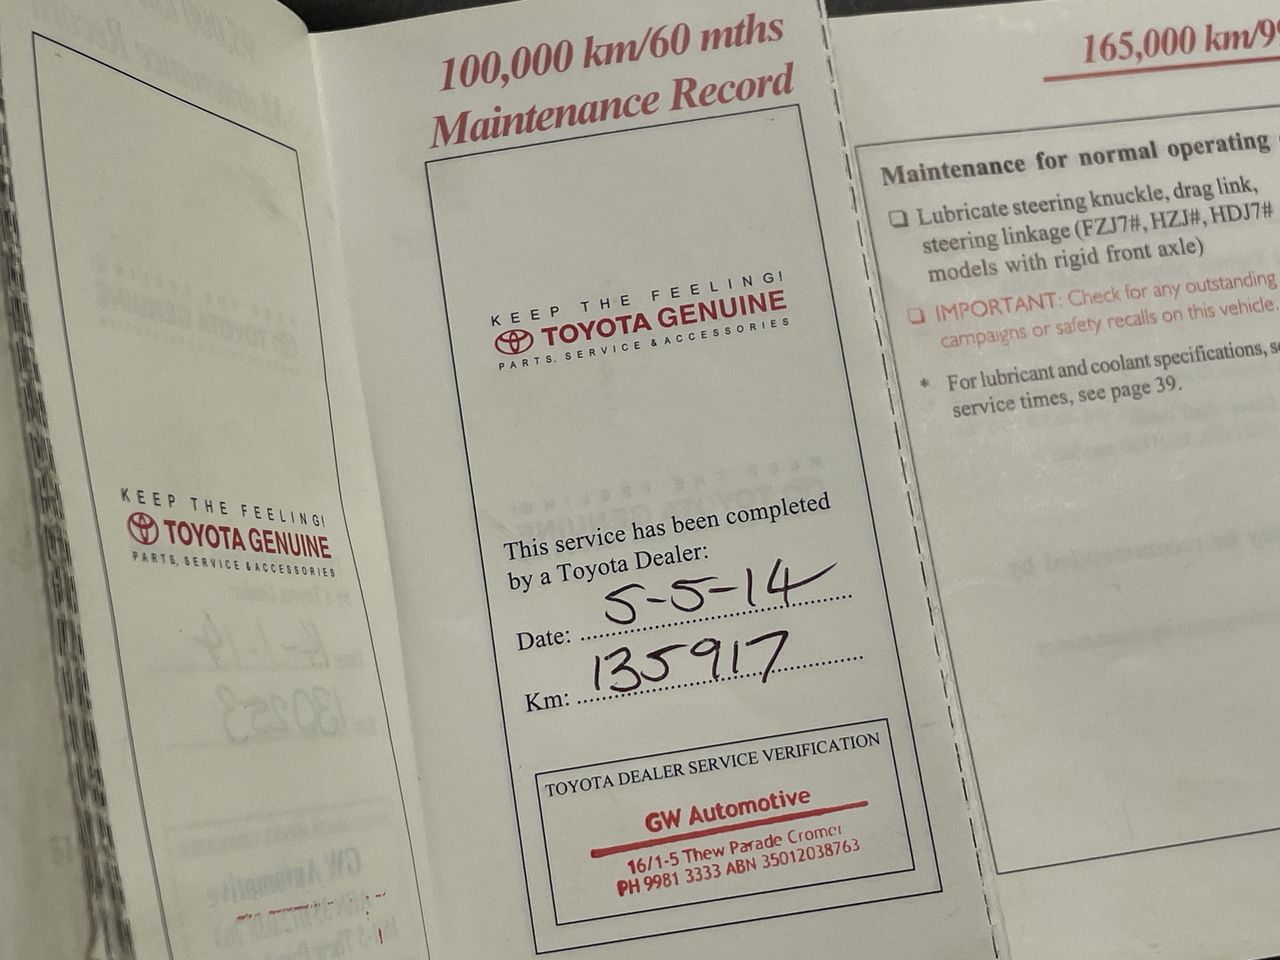 KEEP THE FEELING!
TOYOTA GENUINE
PARTS, SERVICE & ACCESSORIES
100,000 km/60 mths
Maintenance Record
KEEP THE FEELING!
TOYOTA GENUINE
PARTS, SERVICE & ACCESSORIES
This service has been completed
by a Toyota Dealer:
Date: 5-5-14
Km: 135917
TOYOTA DEALER SERVICE VERIFICATION
GW Automotive
16/1-5 Thew Parade Cromer
PH 9981 3333 ABN 35012038763
165,000 km/9
Maintenance for normal operating
❏ Lubricate steering knuckle, drag link,
steering linkage (FZJ7#, HZJ#, HDJ7#
models with rigid front axle)
❏ IMPORTANT: Check for any outstanding
campaigns or safety recalls on this vehicle.
* For lubricant and coolant specifications,
service times, see page 39.